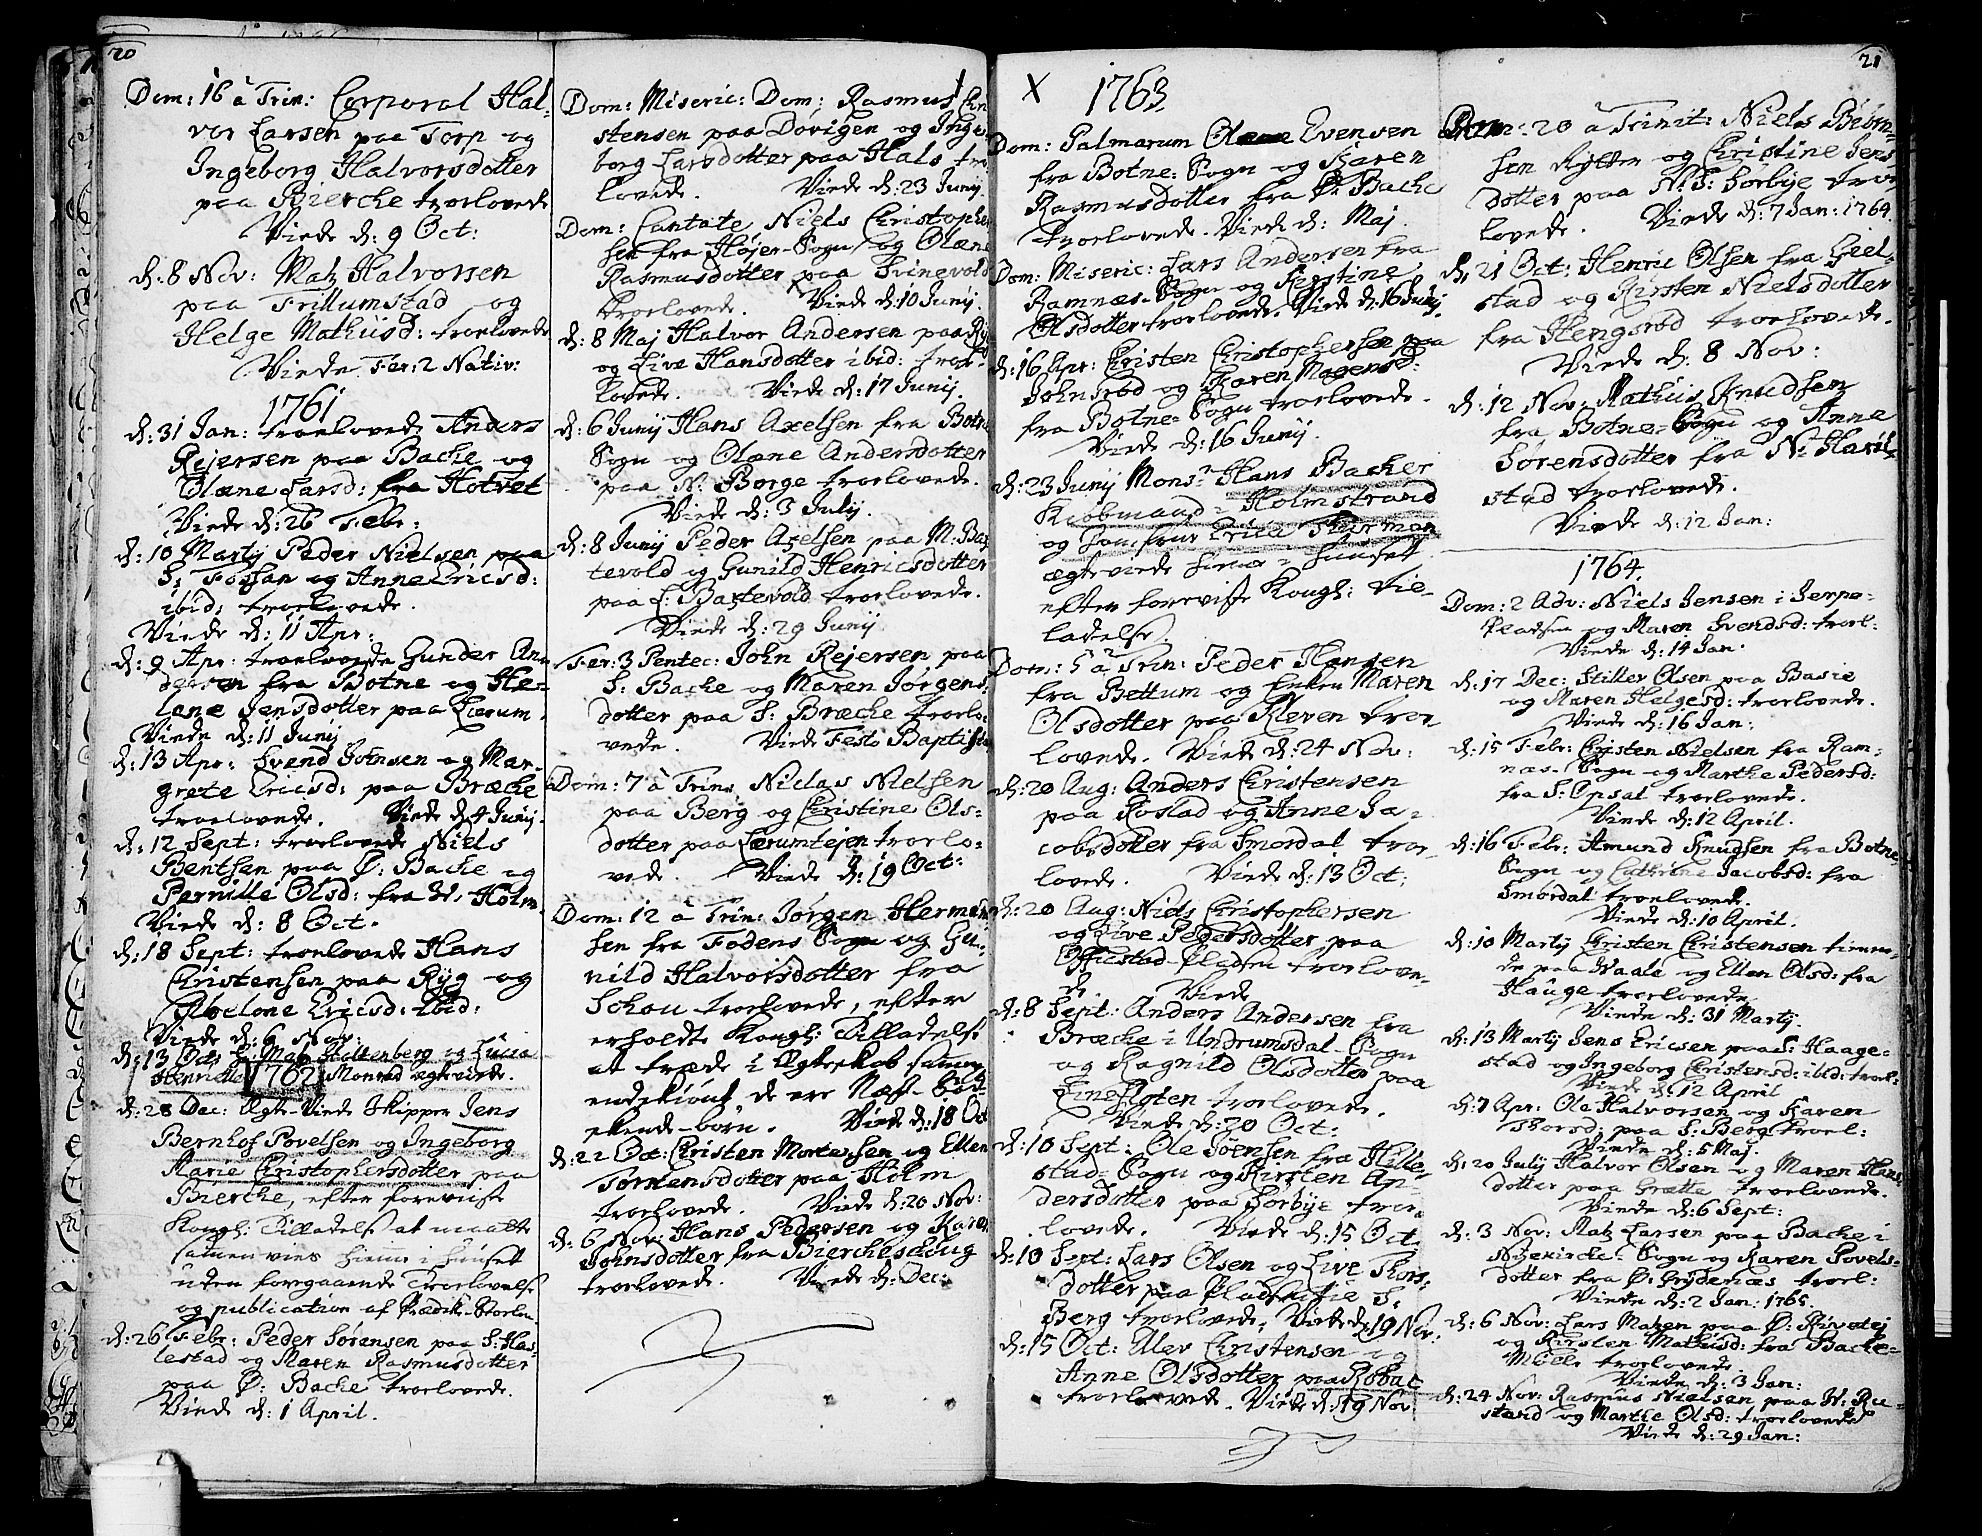 20
Dom: 16 à Trin: Corporal Hal-
vor Larsen paa Torp og
Ingeborg Halvorsdotter
paa Bierche troelovede
Viede d: 9 Oct:
d: 8 Nov: Matz Halvorsen
paa Trillumstad og
Helge Mathiisd: troelovede
Viede Fer: 2 Nativ:
1761
d: 31 Jan: troelovede Anders
Rejersen paa Bache og
Olæne Larsd: fra Holvet
Viede d: 26 Febr:
d: 10 Martij Peder Nielsen paa
S: Fossan og Anne Ericsd:
ibid: troelovede.
Viede d: 11 Apr:
d: 9 Apr: troelovede Gunder An-
dersen fra Botne og He-
lene Jensdotter paa Lærum.
Viede d: 11 Junij
d: 13 Apr: Svend Johnsen og Mar-
grete Ericsd: paa Bræche
troelovede. Viede d: 4 Junij.
d: 12 Sept: troelovede Niels
Bentsen paa Ø: Bache og
Pernille Olsd: fra W. Holm.
Viede d: 8 Oct.
d: 18 Sept: troelovede Hans
Christensen paa Ryg og
Abelone Ericsd: ibid:
Viede d: 6 Nov:
d: 13 Holtenberg og Lucia
Henrietta 1762 Monrad ægteviede.
d: 28 Dec: Ægte-Viede Skipper Jens
Bernhof Povelsen og Ingeborg
Marie Christophersdotter paa
Bierche, efter foreviiste
Kongl: Tilladelse at maatte
sammenvies hiemme i Huuset
uden foregaaende Troelovelse
og publication af Prædike-Stoelen.
d: 26 Febr: Peder Sørensen paa S: Has-
lestad og Maren Rasmusdotter
paa Ø: Bache troelovede.
Viede d: 1 April.
Dom: Miseric: Dom: Rasmus Chri-
stensen paa Dövigen og Inge-
borg Larsdotter paa Hals troe
lovede. Viede d: 23 Junij.
Dom: Cantate Niels Christopher
sen fra Højer-Sogn og Olæne
Rasmusdotter paa Tvinevold
troelovede. Viede d: 10 Junij.
d: 8 Maj Halvor Andersen paa Ryg
og Live Hansdotter ibid: troe-
lovede. Viede d: 17 Junij.
d: 6 Junij Hans Axelsen fra Botne
Sogn og Olæne Andersdotter
paa N: Borge troelovede.
Viede d: 3 Julij.
d: 8 Junij Peder Axelsen paa M: Bax
tevold og Gunild Henricsdotter
paa L: Baxtevold troelovede.
Viede d: 29 Junij
Fer: 3 Pentec: John Rejersen paa
S: Bache og Maren Jørgens-
dotter paa S: Bræche troelo-
vede. Viede Festo Baptistæ
Dom: 7 à Trin: Niclas Nielsen
paa Berg og Christine Ols-
dotter paa Lærumtejen troelo-
vede. Viede d: 19 Oct:
Dom: 12 à Trin: Jørgen Herman
sen fra Fodens Sogn og Gu-
nild Halvorsdotter fra
Schou troelovede, efter
erholdt Kongl: Tilladelse
at træde i Ægteskab sammen
endskiønt de ere Næst-Sød-
skende-børn. Viede d: 18 Oct
d: 22 Oct: Christen Mortensen og Ellen
Torstensdotter paa Holm
troelovede. Viede d: 20 Nov:
d: 6 Nov: Hans Pedersen og Karen
Johnsdotter fra Biercheschoug
troelovede. Viede d: Dec:
X 1763.
Dom: Palmarum Ole Evensen
fra Botne-Sogn og Karen
Rasmusdotter fra Ø: Bache
troelovede. Viede d: Maj
Dom: Miseric: Lars Andersen fra
Ramnæs-Sogn og Kierstine
Olsdotter troelovede. Viede d: 16 Junij.
d: 16 Apr: Christen Christophersen paa
Johnsrød og Karen Magensd:
fra Botne-Sogn troelovede.
Viede d: 16 Junij.
d: 23 Junij Mons:r Hans Bacher
Kiøbmand i Holmstrand
og Jomfrue Erica Thurman
ægteviede hiemme i Huuset
efter foreviiste Kongl: Til-
ladelse.
Dom: 5 à Trin: Peder Hansen
fra Bettum og Enken Maren
Olsdotter paa Kleven troe-
lovede. Viede d: 24 Nov:
d: 20 Aug: Anders Christensen
paa Rostad og Anne Ja-
cobsdotter fra Smørdal troe-
lovede. Viede d: 13 Oct:
d: 20 Aug: Niels Christophersen
og Live Pedersdotter paa
Pladsen troelove-
de. Viede
d: 8 Sept: Anders Andersen fra
Bræche i Undrumsdal-Sogn
og Ragnild Olsdotter paa
troelovede.
Viede d: 20 Oct:
d: 10 Sept: Ole Sørensen fra Hille-
stad-Sogn og Kirsten An-
dersdotter paa Sørbye troe-
lovede. Viede d: 15 Oct.
d: 10 Sept: Lars Olsen og Live Thors-
dotter paa Pladsen S:
Berg troelovede. Viede d: 19 Nov:
d: 15 Oct: Elev Christensen og
Anne Olsdotter paa Robac
troelovede. Viede d: 19 Nov:
21
Dom: 20 à Trinit: Niels Biørn-
sen Rytter og Christine Jens
dotter paa N: S: Sørbye troe-
lovede. Viede d: 7 Jan: 1764.
d: 21 Oct: Henric Olsen fra Giel-
stad og Kirsten Nielsdotter
fra Hengsrød troelovede.
Viede d: 8 Nov:
d: 12 Nov: Mathiis Knudsen
fra Botne-Sogn og Anne
Sørensdotter fra N: Haril-
stad troelovede.
Viede d: 12 Jan:
1764.
Dom: 2 Adv: Niels Jensen i Jerpe-
Pladsen og Maren Svendsd: troel:
Viede d: 14 Jan.
d: 17 Dec: Stiller Olsen paa Basie
og Maren Helgesd: troelovede.
Viede d: 16 Jan:
d: 15 Febr: Christen Nielsen fra Ram-
næs-Sogn og Marthe Pedersd:
fra S: Opsal troelovede.
Viede d: 12 April.
d: 16 Febr: Amund Knudsen fra Botne
Sogn og Cathrine Jacobsd: fra
Smørdal troelovede.
Viede d: 10 April.
d: 10 Martij Christen Christensen tienen-
de paa Waale og Ellen Olsd: fra
Hauge troelovede.
Viede d: 31 Martij.
d: 13 Martij Jens Ericsen paa S: Haage-
stad og Ingeborg Christensd: ibid: troel:
Viede d: 12 April
d: 7 Apr: Ole Halvorsen og Karen
Thorsd: paa S: Berg troel:
Viede d: 5 Maj.
d: 20 Julij Halvor Olsen og Maren Hans
dotter paa Grette troelovede.
Viede d: 6 Sept:
d: 3 Nov: Matz Larsen paa Bache i
Nyekirche-Sogn og Karen Povels-
dotter fra Ø: Frydenæs troel:
Viede d: 2 Jan: 1765.
d: 6 Nov: Lars Matzen paa Ø: Revetej
og Kirsten Mathiisd: fra Bache-
Mølle troelovede.
Viede d: 3 Jan:
d: 24 Nov: Rasmus Nielsen paa W: Ru-
stand og Marthe Olsd: troelovede
Viede d: 29 Jan: